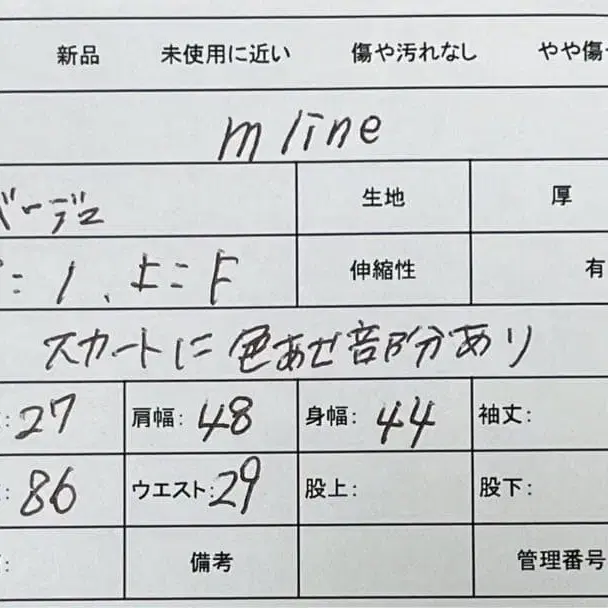 新品 未使用に近い 傷や汚れなし やや傷
m line
ベージュ 生地 厚
: 1、上: F 伸縮性 有
スカートに色あせ部分あり
: 27 肩幅: 48 身幅: 44 袖丈:
: 86 ウエスト: 29 股上: 股下:
: 備考 管理番号